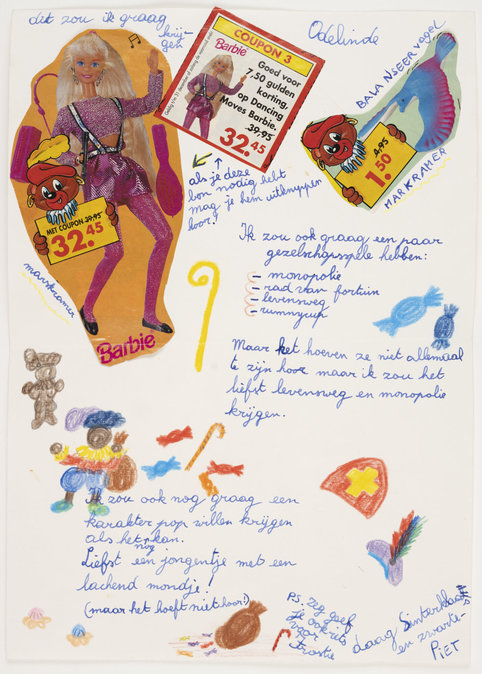 dit zou ik graag
krij-
gen
Odelinde
COUPON 3
Barbie
Goed voor
7,50 gulden
korting,
op Dancing
Moves Barbie.
39.95
32.45
BALANSEER vogel
4.95
1.50
MARKRAMER
als je deze
bon nodig hebt
mag je hem uitknippen
hoor!
MET COUPON 39.95
32.45
marskramer
Barbie
Ik zou ook graag een paar
gezelschapsspele hebben:
- monopolie
- rad van fortuin
- levensweg
- rummycup
Maar het hoeven ze niet allemaal
te zijn hoor maar ik zou het
liefst levensweg en monopolie
krijgen.
Ik zou ook nog graag een
karakter pop willen krijgen
als het kan.
nog
Liefst een jongentje met een
lachend mondje!
(maar het hoeft niet hoor!)
PS. zeg geef
je ook iets
voor
Trostie
daag Sinterklaas
en zwarte-
PIET